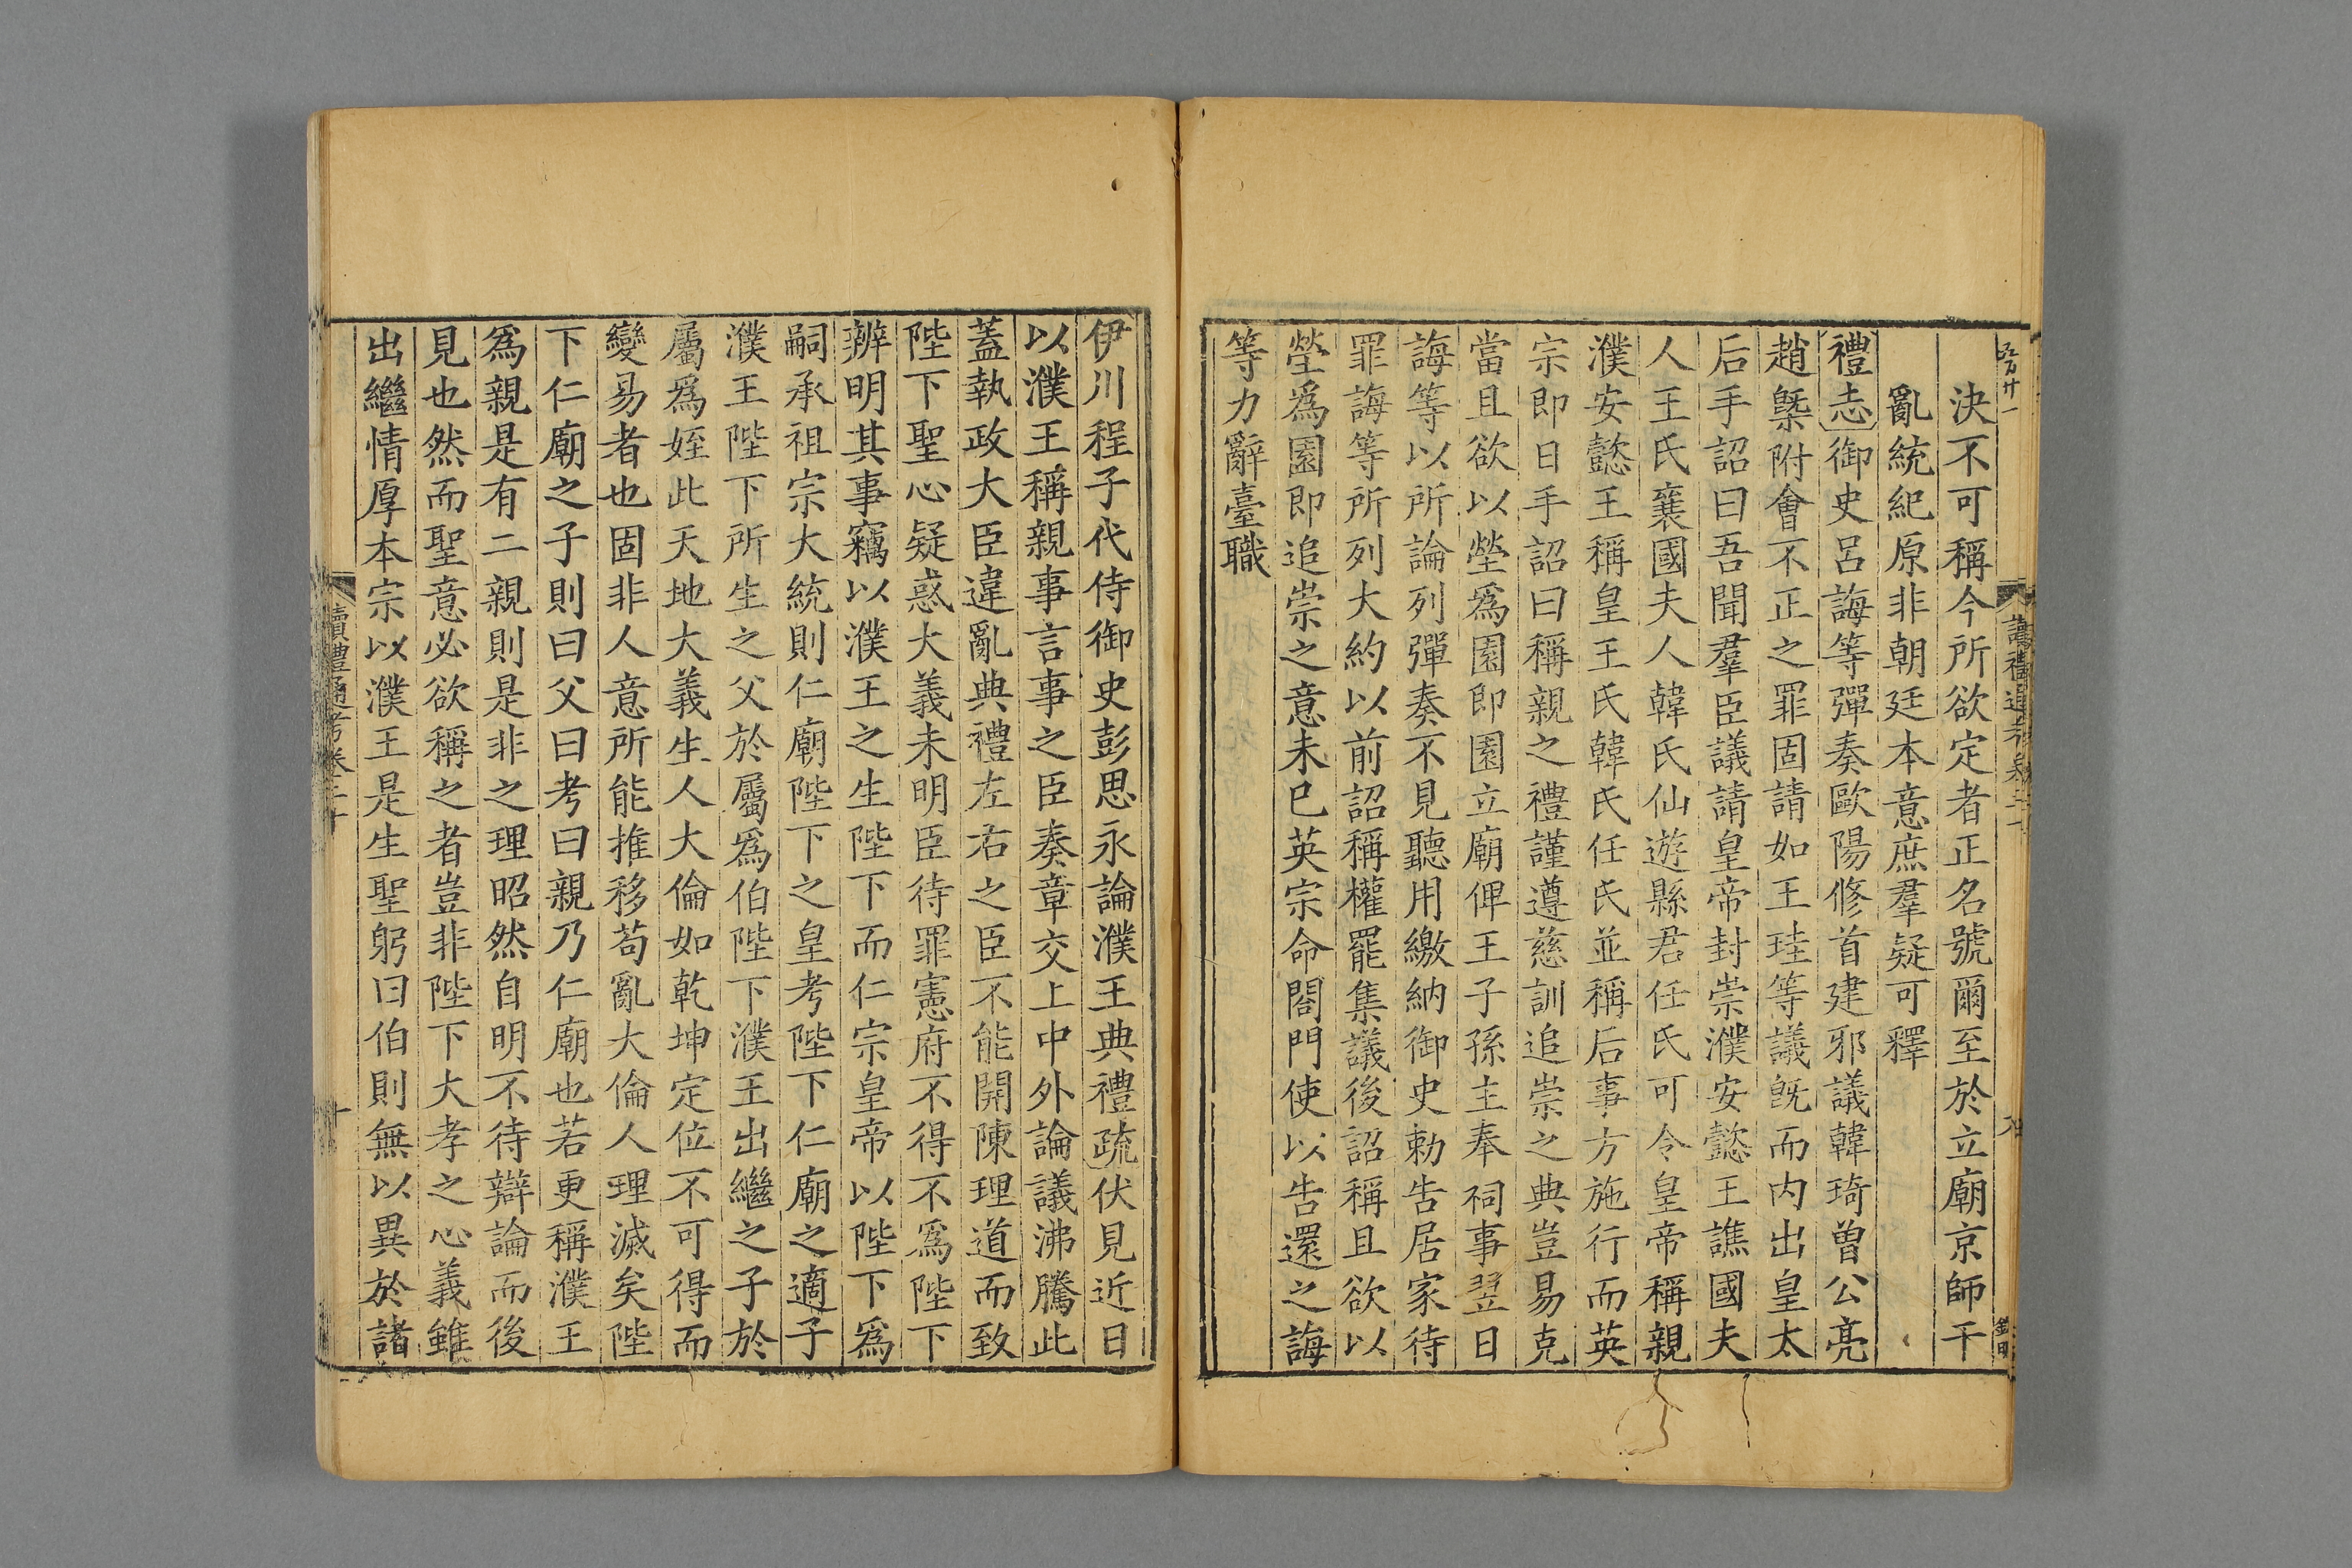 決不可稱今所欲定者正名號爾至於立廟京師干
亂統紀原非朝廷本意庶羣疑可釋
禮志御史呂誨等彈奏歐陽修首建邪議韓琦曾公亮
趙槩附會不正之罪固請如王珪等議旣而內出皇太
后手詔曰吾聞羣臣議請皇帝封崇濮安懿王譙國夫
人王氏襄國夫人韓氏仙遊縣君任氏可令皇帝稱親
濮安懿王稱皇王氏韓氏任氏並稱后事方施行而英
宗即日手詔曰稱親之禮謹遵慈訓追崇之典豈易克
當且欲以塋爲園即園立廟俾王子孫主奉祠事翌日
誨等以所論列彈奏不見聽用繳納御史勅告居家待
罪誨等所列大約以前詔稱權罷集議後詔稱且欲以
塋爲園即追崇之意未已英宗命閤門使以告還之誨
等力辭臺職
伊川程子代侍御史彭思永論濮王典禮疏伏見近日
以濮王稱親事言事之臣奏章交上中外論議沸騰此
蓋執政大臣違亂典禮左右之臣不能開陳理道而致
陛下聖心疑惑大義未明臣待罪憲府不得不爲陛下
辨明其事竊以濮王之生陛下而仁宗皇帝以陛下爲
嗣承祖宗大統則仁廟陛下之皇考陛下仁廟之適子
濮王陛下所生之父於屬爲伯陛下濮王出繼之子於
屬爲姪此天地大義生人大倫如乾坤定位不可得而
變易者也固非人意所能推移苟亂大倫人理滅矣陛
下仁廟之子則曰父曰考曰親乃仁廟也若更稱濮王
爲親是有二親則是非之理昭然自明不待辯論而後
見也然而聖意必欲稱之者豈非陛下大孝之心義雖
出繼情厚本宗以濮王是生聖躬曰伯則無以異於諸
讀禮通考卷二十
十